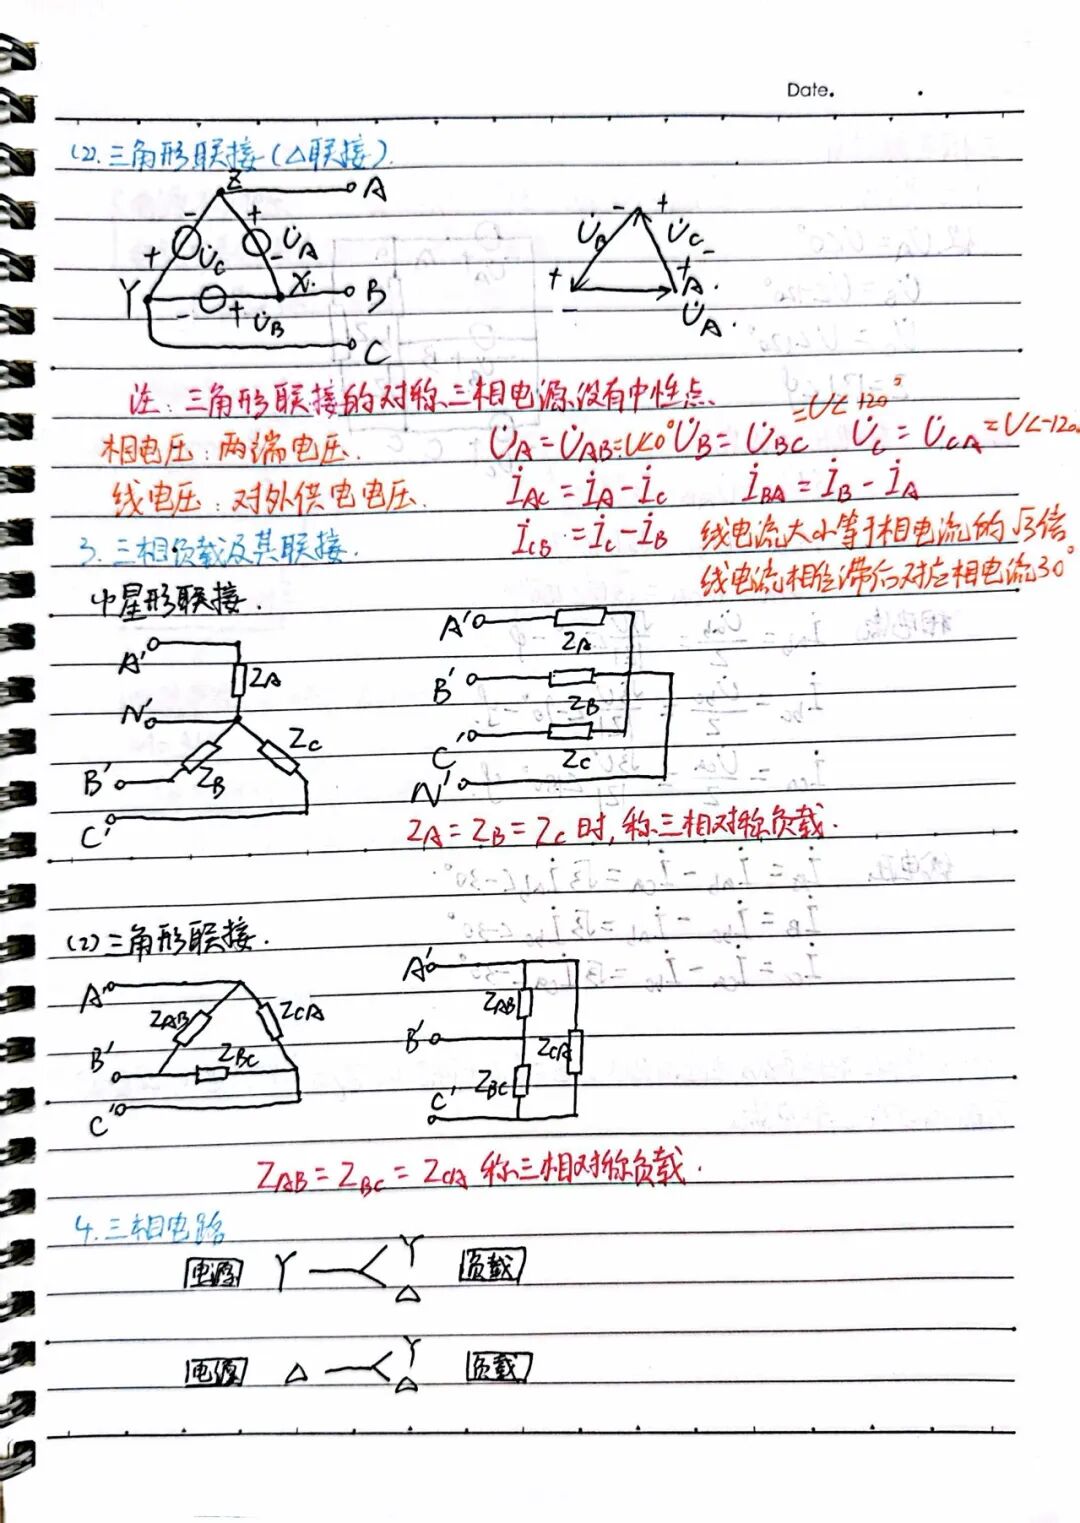 Date.
(2). 三角形联接(△联接).
Z A
- + U̇A
+ U̇C -
Y X. B
- + U̇B
C
- +
U̇B U̇C -
+ + A.
- U̇A.
注: 三角形联接的对称三相电源没有中性点.
相电压: 两端电压. U̇A = U̇AB = U∠0° U̇B = U̇BC = U∠120° U̇C = U̇CA = U∠-120°
线电压: 对外供电电压. İAC = İA - İC İBA = İB - İA
İCB = İC - İB 线电流大小等于相电流的√3倍
线电流相位滞后对应相电流30°
3. 三相负载及其联接.
(1)星形联接.
A' ZA
N'
B' ZB ZC
C'
A' ZA
B' ZB
C' ZC
N'
ZA = ZB = ZC 时, 称三相对称负载.
(2)三角形联接.
A' ZAB ZCA
B' ZBC
C'
A' ZAB
B' ZCA
C' ZBC
ZAB = ZBC = ZCA 称三相对称负载.
4. 三相电路
电源 Y Y 负载
△
电源 △ Y 负载
△